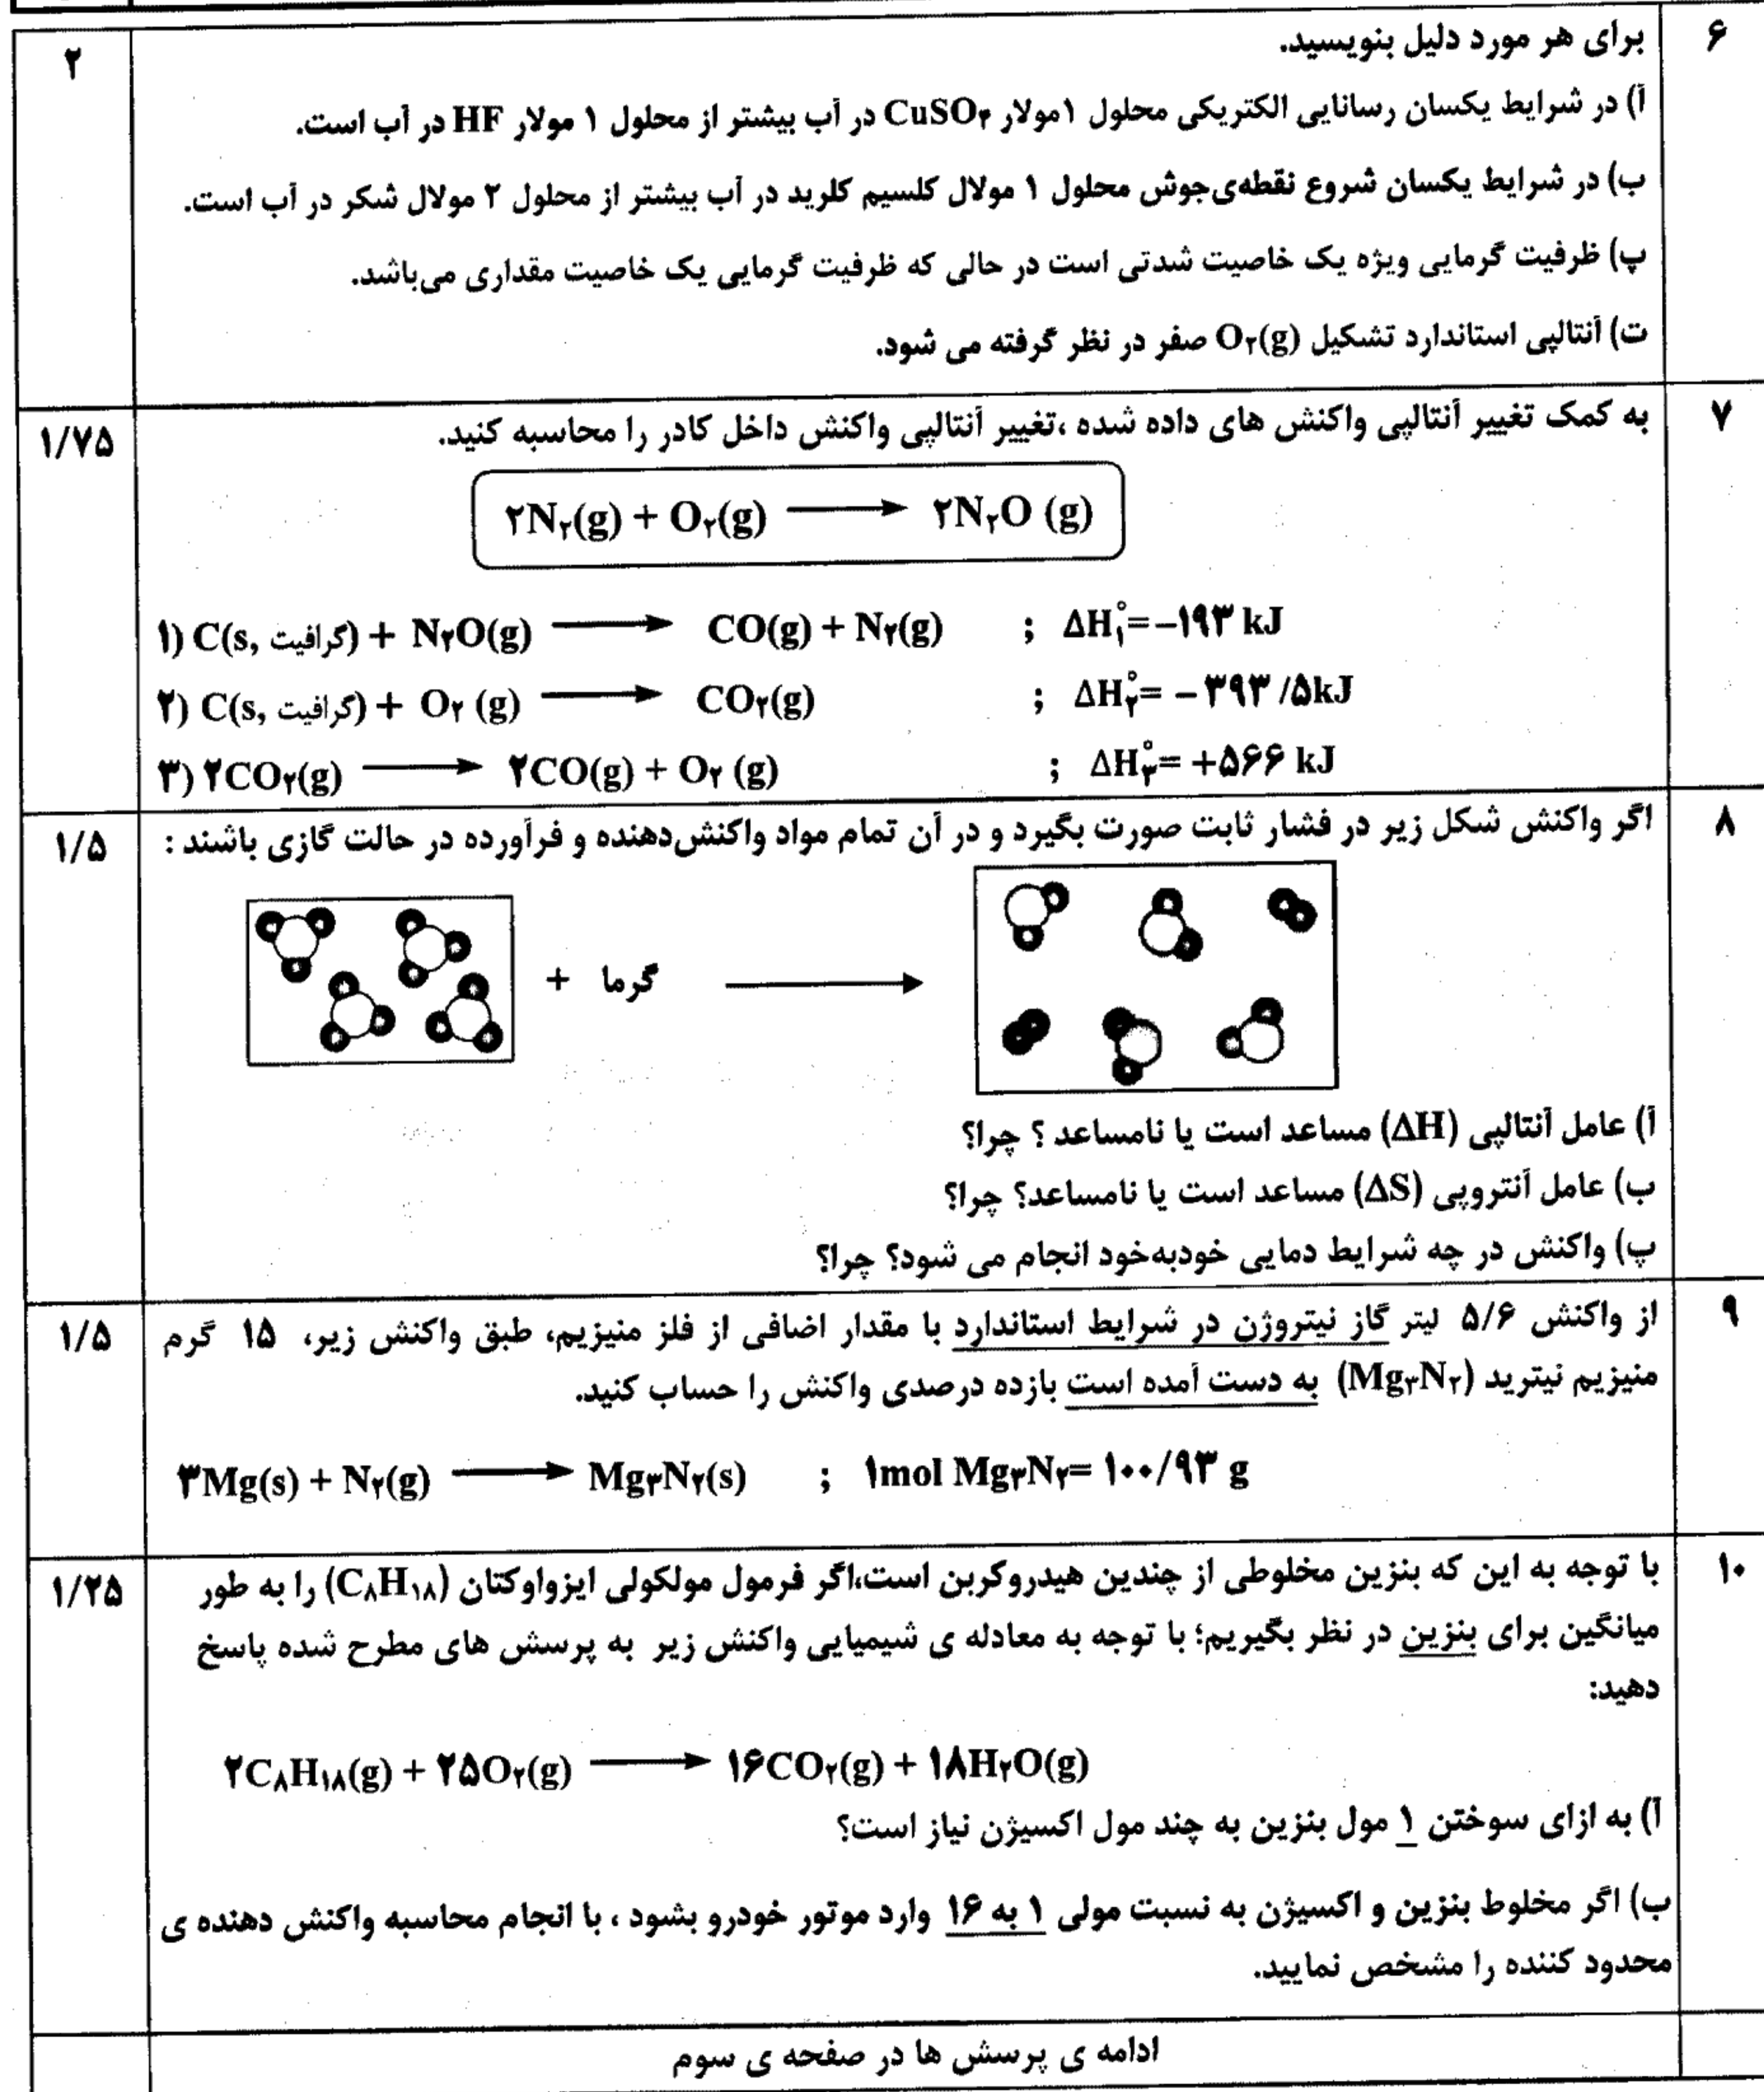 ۶
برای هر مورد دلیل بنویسید.
۲
آ) در شرایط یکسان رسانایی الکتریکی محلول ۱مولار CuSO۴ در آب بیشتر از محلول ۱ مولار HF در آب است.
ب) در شرایط یکسان شروع نقطه‌ی‌جوش محلول ۱ مولال کلسیم کلرید در آب بیشتر از محلول ۲ مولال شکر در آب است.
پ) ظرفیت گرمایی ویژه یک خاصیت شدتی است در حالی که ظرفیت گرمایی یک خاصیت مقداری می‌باشد.
ت) آنتالپی استاندارد تشکیل O۲(g) صفر در نظر گرفته می شود.
۷
به کمک تغییر آنتالپی واکنش های داده شده ،تغییر آنتالپی واکنش داخل کادر را محاسبه کنید.
۱/۷۵
۲N۲(g) + O۲(g) ⟶ ۲N۲O (g)
۱) C(s, گرافیت) + N۲O(g) ⟶ CO(g) + N۲(g) ; ΔH°۱=−۱۹۳ kJ
۲) C(s, گرافیت) + O۲ (g) ⟶ CO۲(g) ; ΔH°۲= −۳۹۳/۵kJ
۳) ۲CO۲(g) ⟶ ۲CO(g) + O۲ (g) ; ΔH°۳= +۵۶۶ kJ
۸
اگر واکنش شکل زیر در فشار ثابت صورت بگیرد و در آن تمام مواد واکنش‌دهنده و فرآورده در حالت گازی باشند :
۱/۵
+ گرما ⟶
آ) عامل آنتالپی (ΔH) مساعد است یا نامساعد ؟ چرا؟
ب) عامل آنتروپی (ΔS) مساعد است یا نامساعد؟ چرا؟
پ) واکنش در چه شرایط دمایی خودبه‌خود انجام می شود؟ چرا؟
۹
از واکنش ۵/۶ لیتر گاز نیتروژن در شرایط استاندارد با مقدار اضافی از فلز منیزیم، طبق واکنش زیر، ۱۵ گرم
۱/۵
منیزیم نیترید (Mg۳N۲) به دست آمده است بازده درصدی واکنش را حساب کنید.
۳Mg(s) + N۲(g) ⟶ Mg۳N۲(s) ; ۱mol Mg۳N۲= ۱۰۰/۹۳ g
۱۰
با توجه به این که بنزین مخلوطی از چندین هیدروکربن است،اگر فرمول مولکولی ایزواوکتان (C۸H۱۸) را به طور
۱/۲۵
میانگین برای بنزین در نظر بگیریم؛ با توجه به معادله ی شیمیایی واکنش زیر به پرسش های مطرح شده پاسخ
دهید:
۲C۸H۱۸(g) + ۲۵O۲(g) ⟶ ۱۶CO۲(g) + ۱۸H۲O(g)
آ) به ازای سوختن ۱ مول بنزین به چند مول اکسیژن نیاز است؟
ب) اگر مخلوط بنزین و اکسیژن به نسبت مولی ۱ به ۱۶ وارد موتور خودرو بشود ، با انجام محاسبه واکنش دهنده ی
محدود کننده را مشخص نمایید.
ادامه ی پرسش ها در صفحه ی سوم